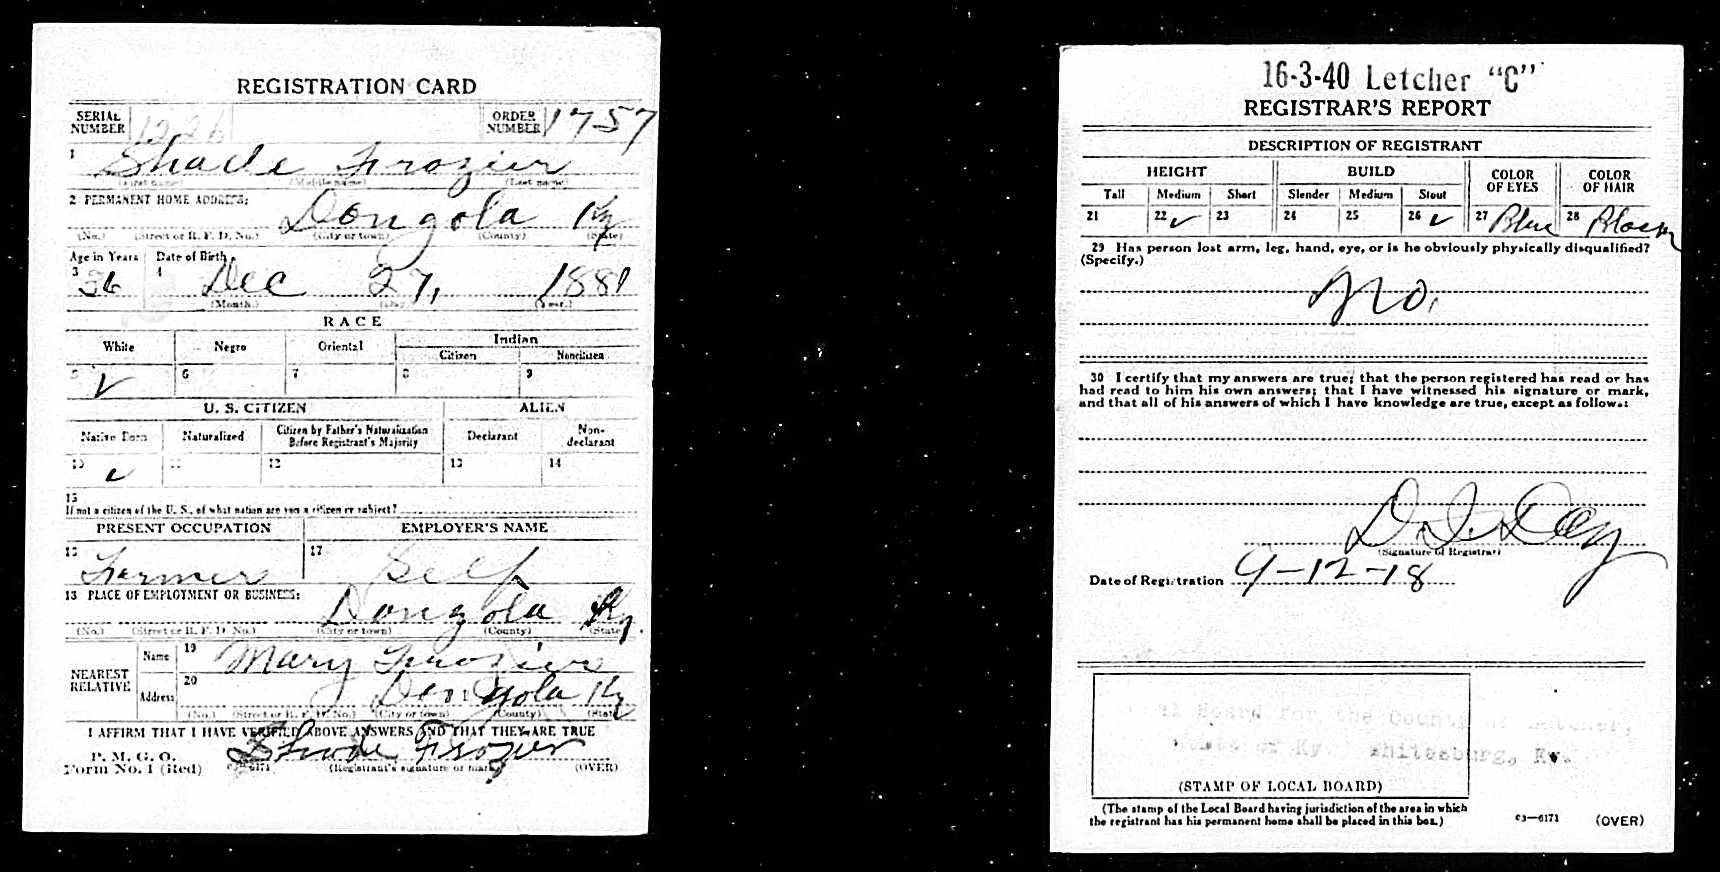 REGISTRATION CARD
SERIAL NUMBER 1226 ORDER NUMBER 1757
1 Shade Frozier
(First name) (Middle name) (Last name)
2 PERMANENT HOME ADDRESS: Dongola Ky
(No.) (Street or R. F. D. No.) (City or town) (County) (State)
Age in Years Date of Birth
3 36 4 Dec 27, 1881
(Month.) (Day.) (Year.)
RACE
White Negro Oriental Indian
Citizen Noncitizen
5 ✓ 6 7 8 9
U. S. CITIZEN ALIEN
Native Born Naturalized Citizen by Father's Naturalization Before Registrant's Majority Declarant Non-declarant
10 ✓ 11 12 13 14
15
If not a citizen of the U. S., of what nation are you a citizen or subject?
PRESENT OCCUPATION EMPLOYER'S NAME
16 Farmer 17 Self
18 PLACE OF EMPLOYMENT OR BUSINESS:
Dongola Ky.
(No.) (Street or R. F. D. No.) (City or town) (County) (State)
NEAREST RELATIVE Name 19 Mary Frozier
Address 20 Dongola Ky
(No.) (Street or R. F. D. No.) (City or town) (County) (State)
I AFFIRM THAT I HAVE VERIFIED ABOVE ANSWERS AND THAT THEY ARE TRUE
P. M. G. O.
Form No. 1 (Red) Shade Frozier
(Registrant's signature or mark) (OVER)
16-3-40 Letcher "C"
REGISTRAR'S REPORT
DESCRIPTION OF REGISTRANT
HEIGHT BUILD COLOR OF EYES COLOR OF HAIR
Tall Medium Short Slender Medium Stout
21 22 ✓ 23 24 25 26 ✓ 27 Blue 28 Black
29 Has person lost arm, leg, hand, eye, or is he obviously physically disqualified?
(Specify.)
No.
30 I certify that my answers are true; that the person registered has read or has
had read to him his own answers; that I have witnessed his signature or mark,
and that all of his answers of which I have knowledge are true, except as follows:
D. I. Day
(Signature of Registrar)
Date of Registration 9-12-18
Board for the County of Letcher,
Ky. Whitesburg, Ky.
(STAMP OF LOCAL BOARD)
(The stamp of the Local Board having jurisdiction of the area in which
the registrant has his permanent home shall be placed in this box.)
03—6171 (OVER)